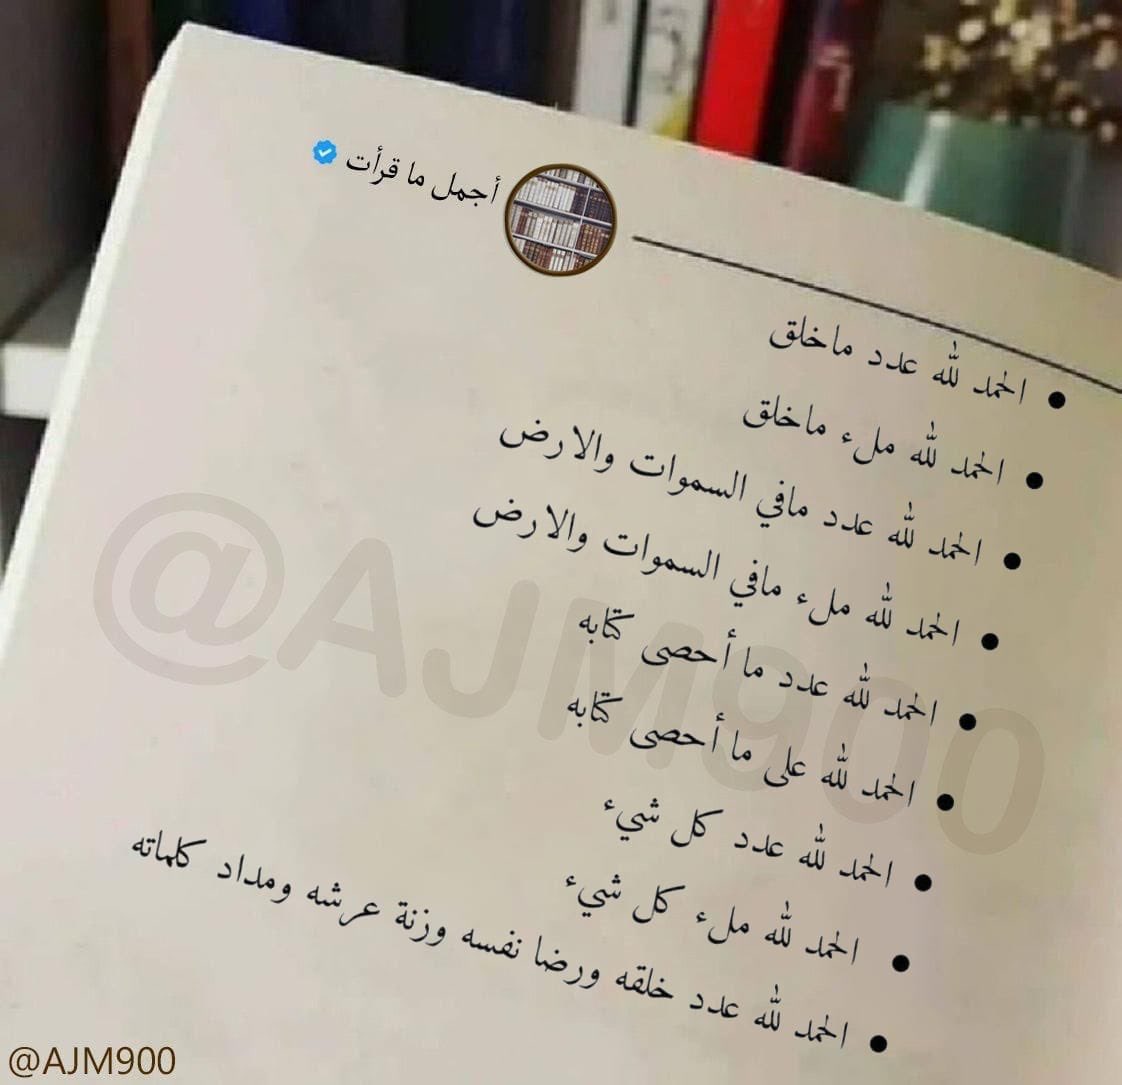 أجمل ما قرأت
• الحمد لله عدد ماخلق
• الحمد لله ملء ماخلق
• الحمد لله عدد مافي السموات والارض
• الحمد لله ملء مافي السموات والارض
• الحمد لله عدد ما أحصى كتابه
• الحمد لله على ما أحصى كتابه
• الحمد لله عدد كل شيء
• الحمد لله ملء كل شيء
• الحمد لله عدد خلقه ورضا نفسه وزنة عرشه ومداد كلماته
@AJM900
@AJM900